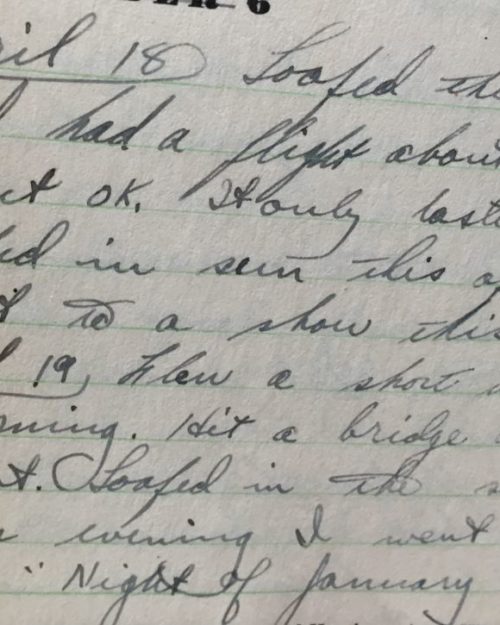 DER 6
ril 18 Loafed the
I had a flight about
ut OK. It only last
ed in sun this a
t to a show this
l 19, Flew a short
rning. Hit a bridge
t. Loafed in the s
evening I went
" Night Of January